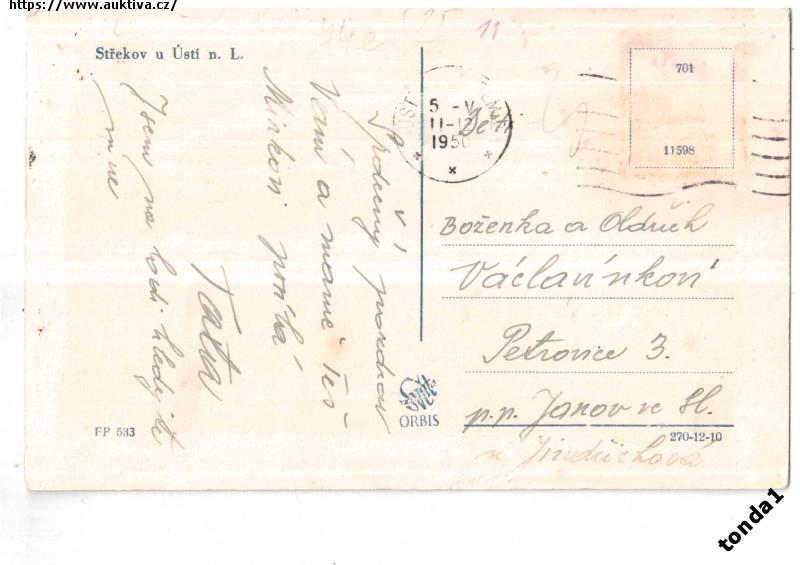 https://www.auktiva.cz/
Střekov u Ústí n. L.
11
Srdečný pozdrav
Vám a mamě též
Mirkovi posílá
Táta
Jsem na lodi hledejte
mne
5 -V
11-12
1950
Děti
701
11598
Boženka a Oldřich
Václavínkovi
Petrovice 3.
p.p. Janov ve Sl.
u Jindřichova
Svět
ORBIS
FP 533
270-12-10
tonda1